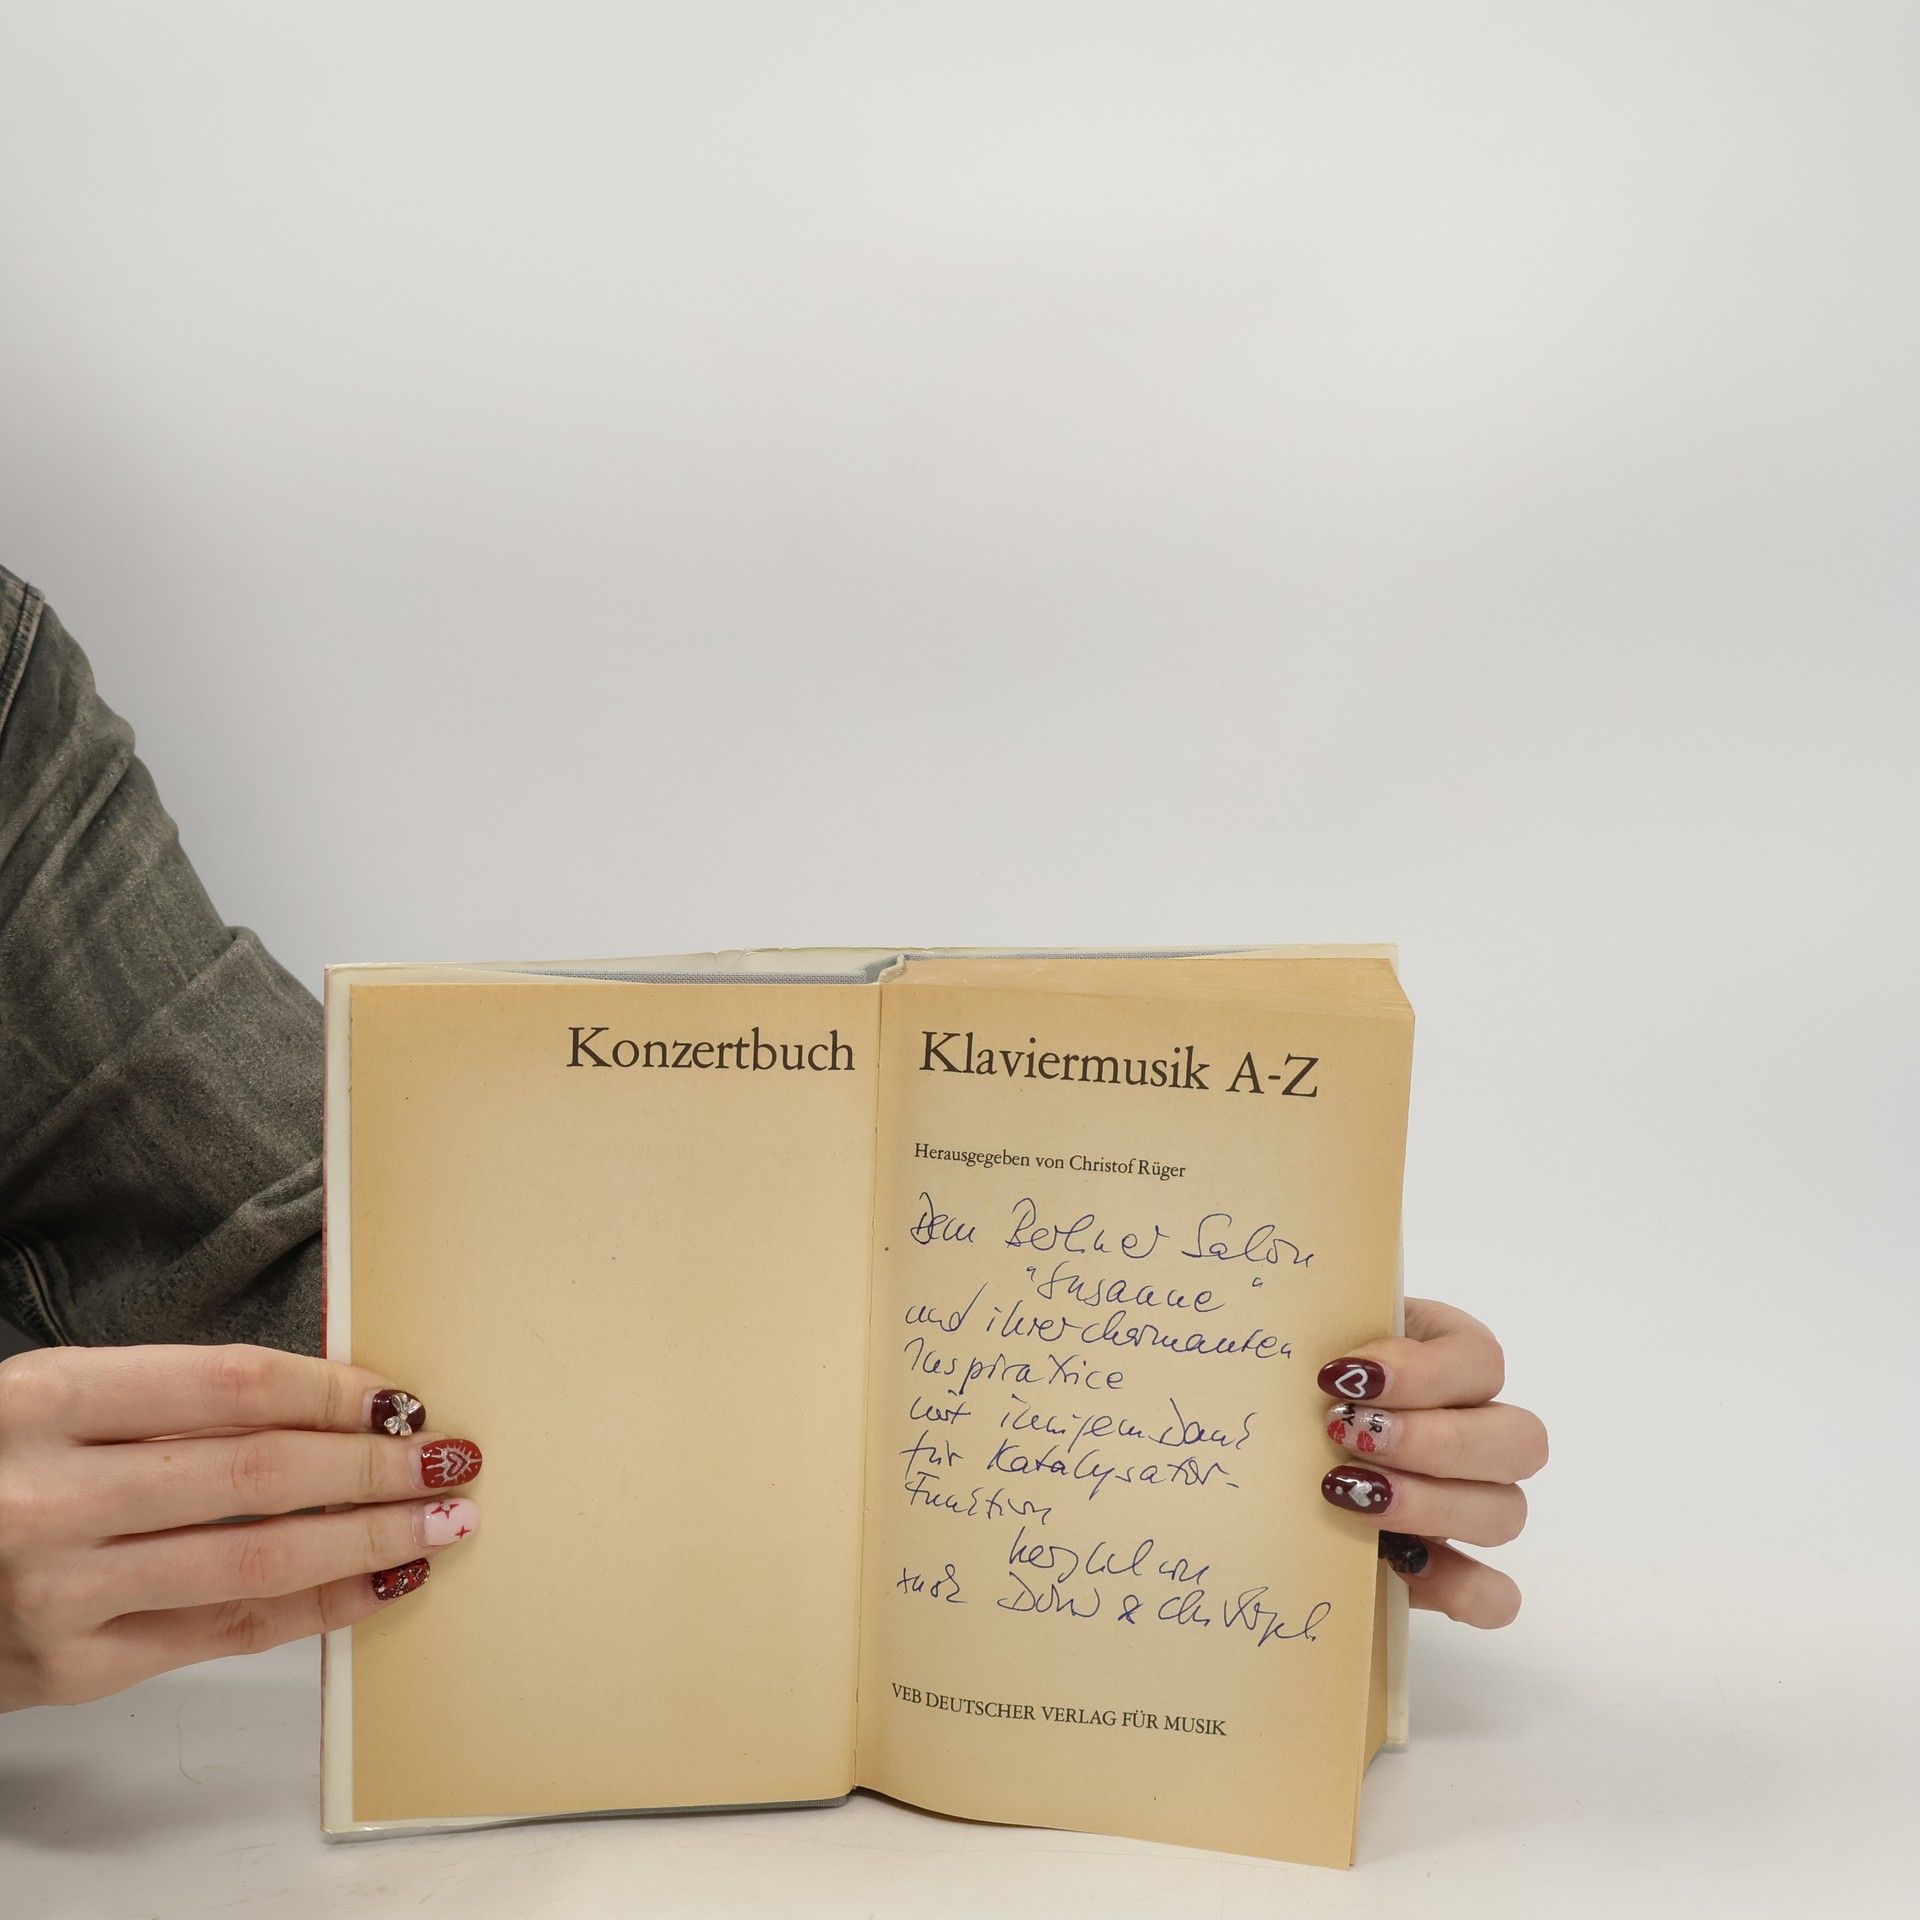 Konzertbuch
Klaviermusik A-Z
Herausgegeben von Christof Rüger
Dem Berliner Salon
"Susanne"
und ihrer charmanten
Inspiratrice
mit innigem Dank
für Katalysator-
Funktion
herzlich
&
VEB DEUTSCHER VERLAG FÜR MUSIK
MY
UR